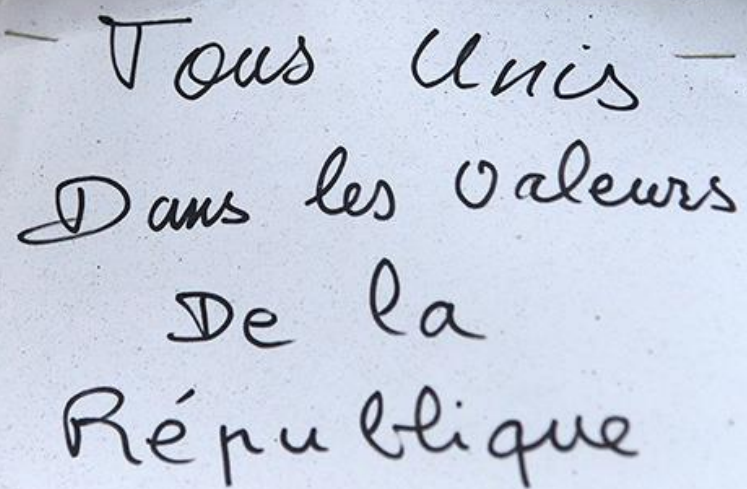 Tous Unis
Dans les valeurs
De la
République